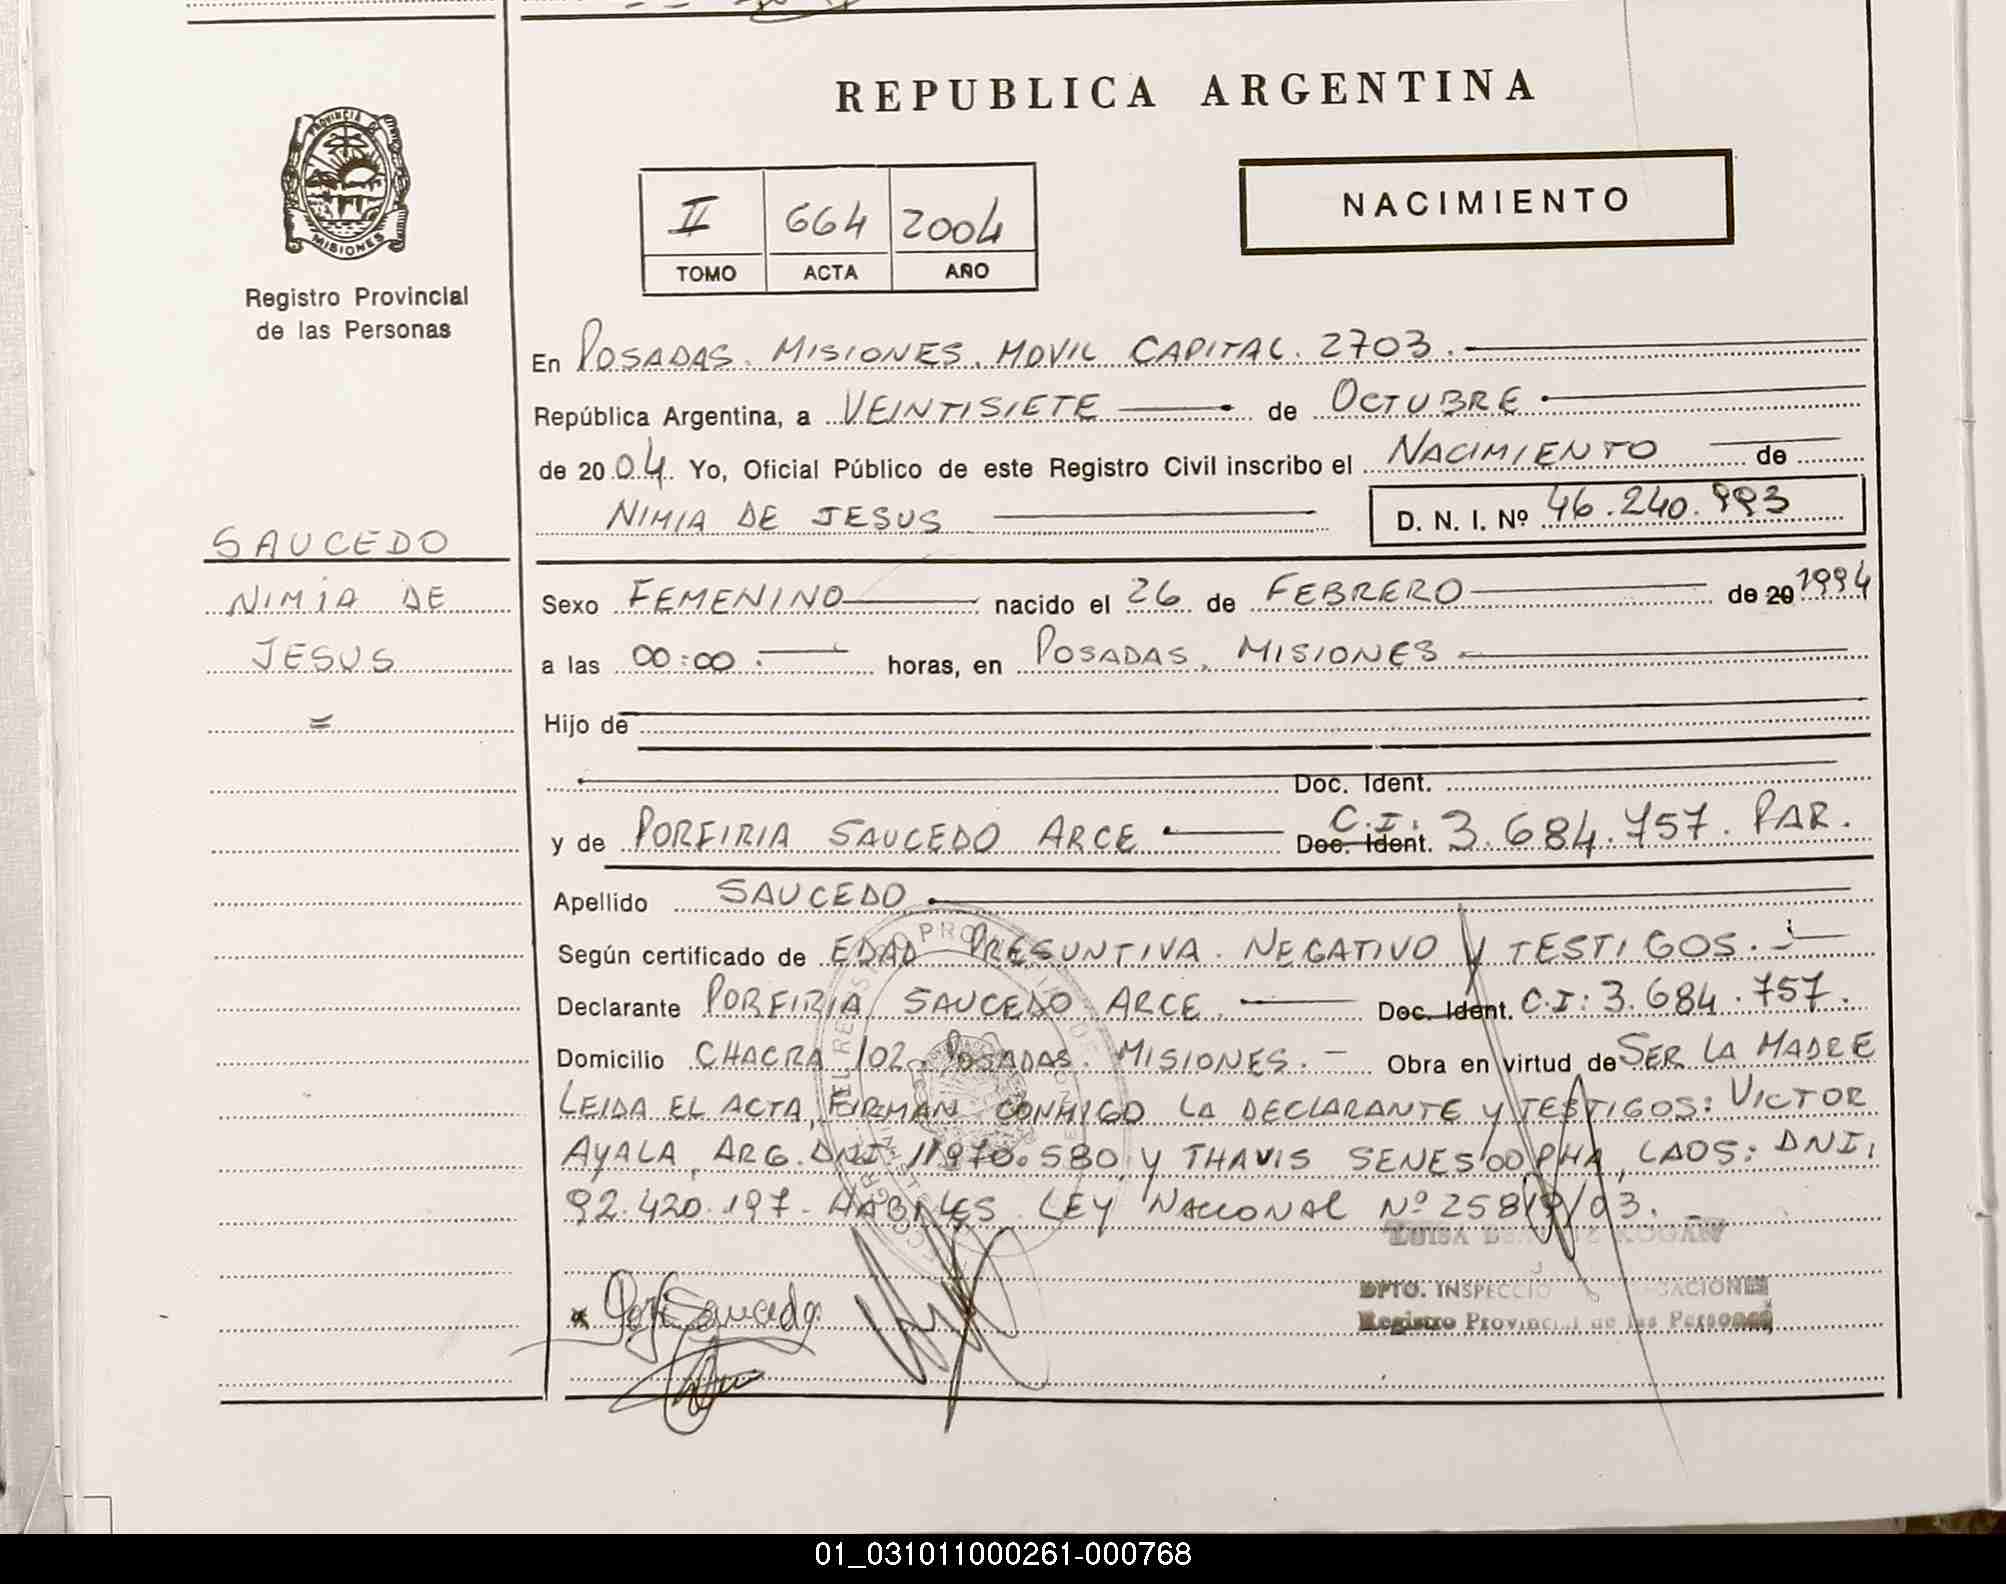 REPUBLICA ARGENTINA
PROVINCIA DE MISIONES
Registro Provincial
de las Personas
II 664 2004
TOMO ACTA AÑO
NACIMIENTO
En POSADAS. MISIONES. MOVIL CAPITAL. 2703.
República Argentina, a VEINTISIETE de OCTUBRE
de 2004. Yo, Oficial Público de este Registro Civil inscribo el NACIMIENTO de
NIMIA DE JESUS D. N. I. Nº 46.240.993
SAUCEDO
NIMIA DE
JESUS
Sexo FEMENINO nacido el 26 de FEBRERO de 20 1994
a las 00:00. horas, en POSADAS, MISIONES
Hijo de
Doc. Ident.
y de PORFIRIA SAUCEDO ARCE Doc. Ident. C.I: 3.684.757. PAR.
Apellido SAUCEDO
Según certificado de EDAD PRESUNTIVA. NEGATIVO Y TESTIGOS.
Declarante PORFIRIA SAUCEDO ARCE. Doc. Ident. C.I: 3.684.757.
Domicilio CHACRA 102. POSADAS. MISIONES. - Obra en virtud de SER LA MADRE
LEIDA EL ACTA, FIRMAN CONMIGO LA DECLARANTE Y TESTIGOS: VICTOR
AYALA, ARG. DNI. 11970.580 Y THAVIS SENESOOPHA, LAOS: DNI:
92.420.197. HABILES. LEY NACIONAL Nº 25819/03. -
LUISA
DPTO. INSPECCIO
Registro Provincial de las Personas
01_031011000261-000768